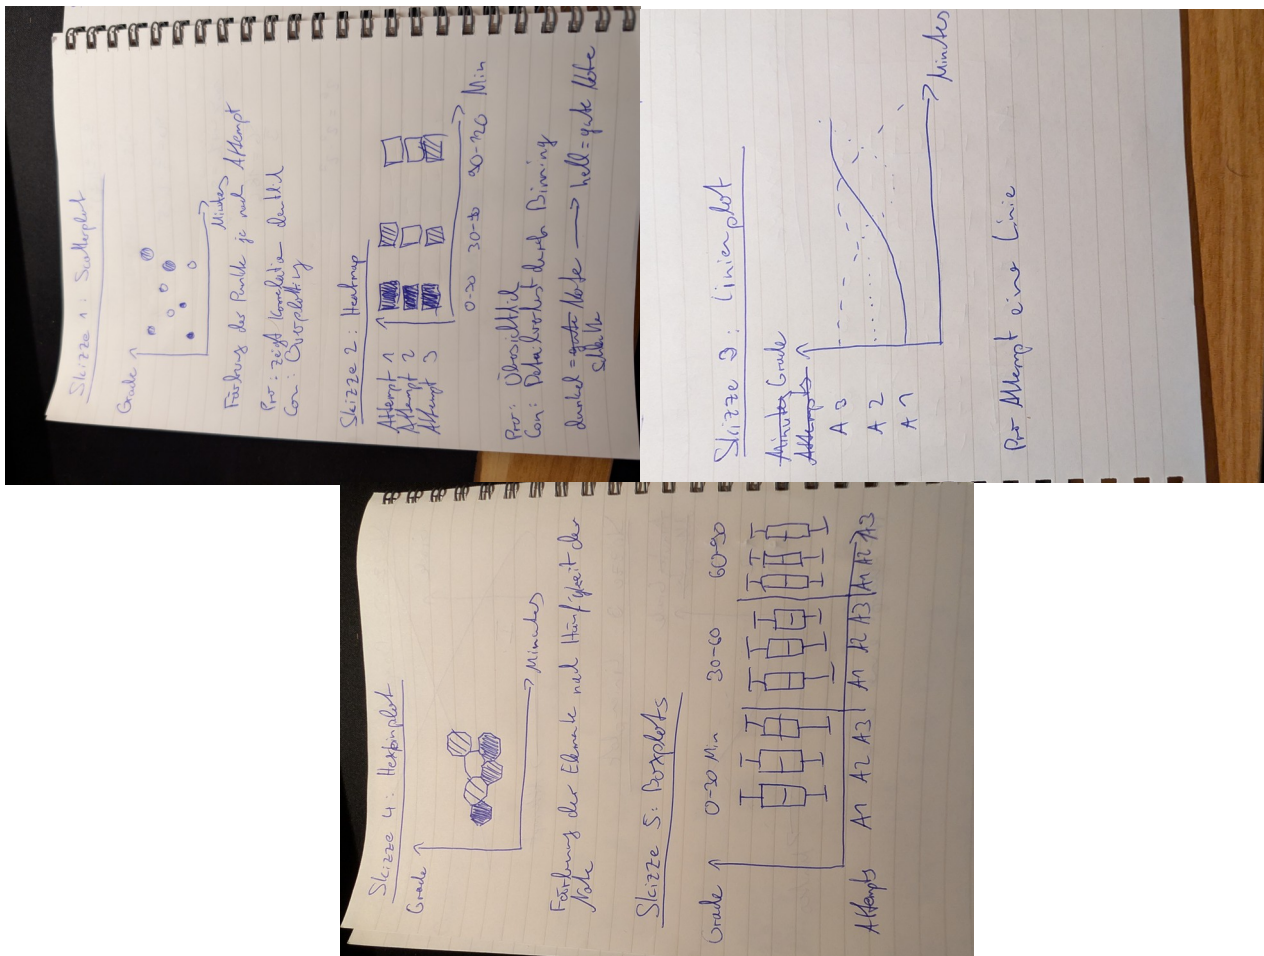 Skizze 1: Scatterplot
Grade
Minutes
Färbung der Punkte je nach Attempt
Pro: zeigt Korrelation deutlich
Con: Overplotting
Skizze 2: Heatmap
Attempt 1
Attempt 2
Attempt 3
0-30 30-90 90-120 Min
Pro: Übersichtlich
Con: Detailverlust durch Binning
dunkel = gute Note → hell = gute Note
schlechte
Skizze 3: Linienplot
Minutes Grade
Attempts
A3
A2
A1
Minutes
Pro Attempt eine Linie
Skizze 4: Hexbinplot
Grade
Minutes
Färbung der Elemente nach Häufigkeit der
Note
Skizze 5: Boxplots
Grade
0-30 Min 30-60 60-90
Attempts A1 A2 A3 A1 A2 A3 A1 A2 A3